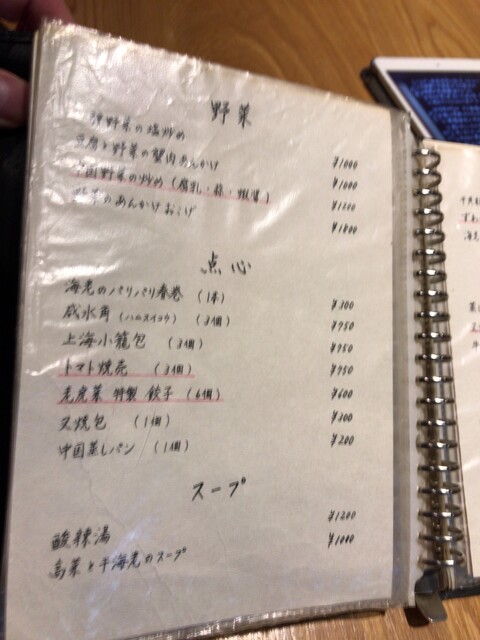 野菜
野菜の塩炒め ¥1000
豆腐と野菜の蟹肉あんかけ ¥1000
中国野菜の炒め（腐乳・蒜・蝦醤） ¥1200
のあんかけおこげ ¥1800
点心
海老のパリパリ春巻（1本） ¥300
咸水角（ハムスイコウ）（3個） ¥950
上海小籠包（3個） ¥950
トマト焼売（3個） ¥950
老虎菜 特製 餃子（6個） ¥600
叉焼包（1個） ¥300
中国蒸しパン（1個） ¥200
スープ
酸辣湯 ¥1200
高菜と干海老のスープ ¥1000